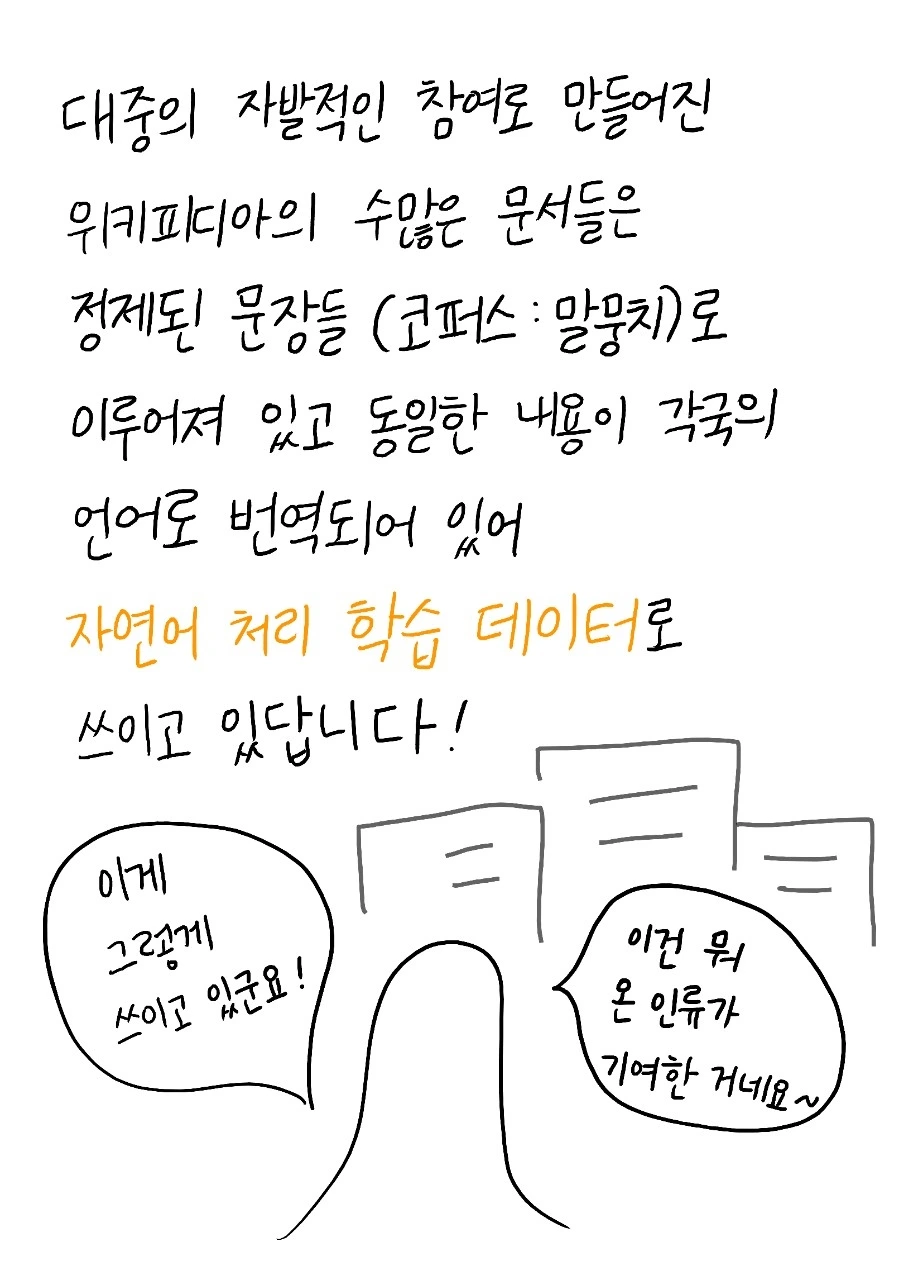 대중의 자발적인 참여로 만들어진
위키피디아의 수많은 문서들은
정제된 문장들 (코퍼스 : 말뭉치)로
이루어져 있고 동일한 내용이 각국의
언어로 번역되어 있어
자연어 처리 학습 데이터로
쓰이고 있답니다!
이게
그렇게
쓰이고 있군요!
이건 뭐
온 인류가
기여한 거네요~